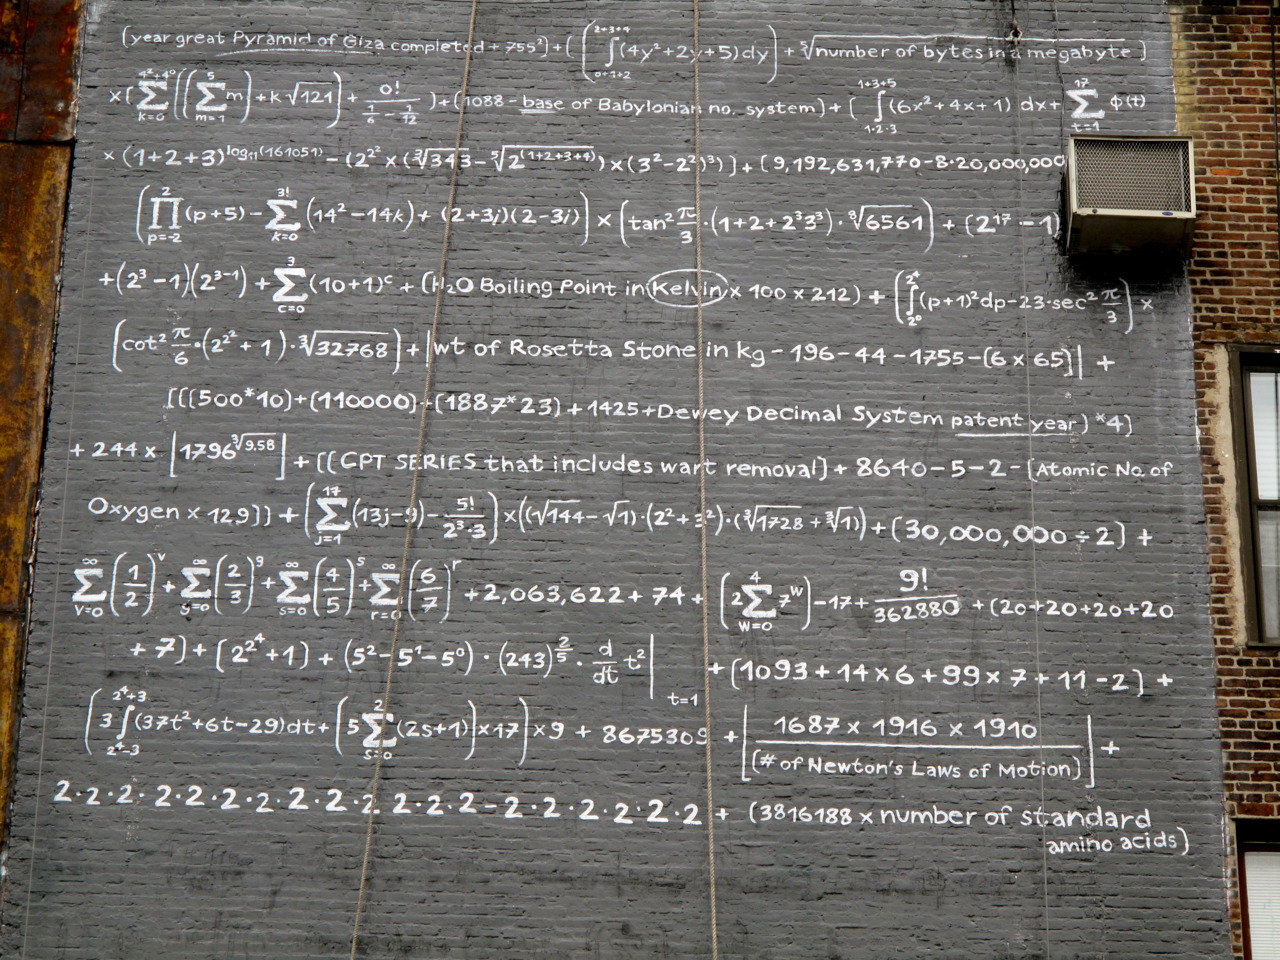 (year great Pyramid of Giza completed + 755²) + ( (∫_{0+1+2}^{2+3+4} (4y²+2y+5) dy) + ⁵√number of bytes in a megabyte )
×( ∑_{k=0}^{4²+4⁰} ((∑_{m=1}^{5} m) + k·√121) + 0!/(1/6 − 1/12) ) + (1088 − base of Babylonian no. system) + ( ∫_{1·2·3}^{1+3+5} (6x²+4x+1) dx + ∑_{t=1}^{17} ϕ(t)
× (1+2+3)^{log₁₁(161051)} − (2^{2²} × (∛343 − ⁵√2^{(1+2+3+4)}) × (3²−2²)³) ) + (9,192,631,770 − 8·20,000,000
(∏_{p=-2}^{2} (p+5) − ∑_{k=0}^{3!} (14² − 14k) + (2+3i)(2−3i)) × (tan² π/3 · (1+2+2³3³) · ⁸√6561) + (2¹⁷ − 1)
+ (2³ − 1)(2³⁻¹) + ∑_{c=0}^{3} (10+1)^c + (H₂O Boiling Point in Kelvin × 100 × 212) + (∫_{2⁰}^{2⁴} (p+1)² dp − 23·sec² π/3) ×
(cot² π/6 · (2^{2²} + 1) · ∛32768) + |wt of Rosetta Stone in kg − 196 − 44 − 1755 − (6 × 65)| +
[((500*10)+(110000)+(1887*23)+1425+Dewey Decimal System patent year) *4)
+ 244 × ⌊1796^{∛9.58}⌋ + ((CPT SERIES that includes wart removal) + 8640 − 5 − 2 − (Atomic No. of
Oxygen × 129)) + (∑_{j=1}^{17} (13j−9) − 5!/(2³·3)) × ((√144 − √1) · (2² + 3²) · (∛1728 + ∛1)) + (30,000,000 ÷ 2) +
∑_{v=0}^{∞} (1/2)^v + ∑_{g=0}^{∞} (2/3)^g + ∑_{s=0}^{∞} (4/5)^s + ∑_{r=0}^{∞} (6/7)^r + 2,063,622 + 74 + (2∑_{w=0}^{4} 7^w) − 17 + 9!/362880 + (20+20+20+20
+ 7) + (2^{2⁴} + 1) + (5² − 5¹ − 5⁰) · (243)^{2/5} · d/dt t² |_{t=1} + (1093 + 14 × 6 + 99 × 7 + 11 − 2) +
(3∫_{2⁴−3}^{2⁴+3} (37t² + 6t − 29) dt + (5∑_{s=0}^{2} (2s+1)) × 17) × 9 + 8675309 + ⌊1687 × 1916 × 1910 / (# of Newton's Laws of Motion)⌋ +
2·2·2·2·2·2·2·2·2·2·2·2·2 − 2·2·2·2·2·2 + (3816188 × number of standard
amino acids)